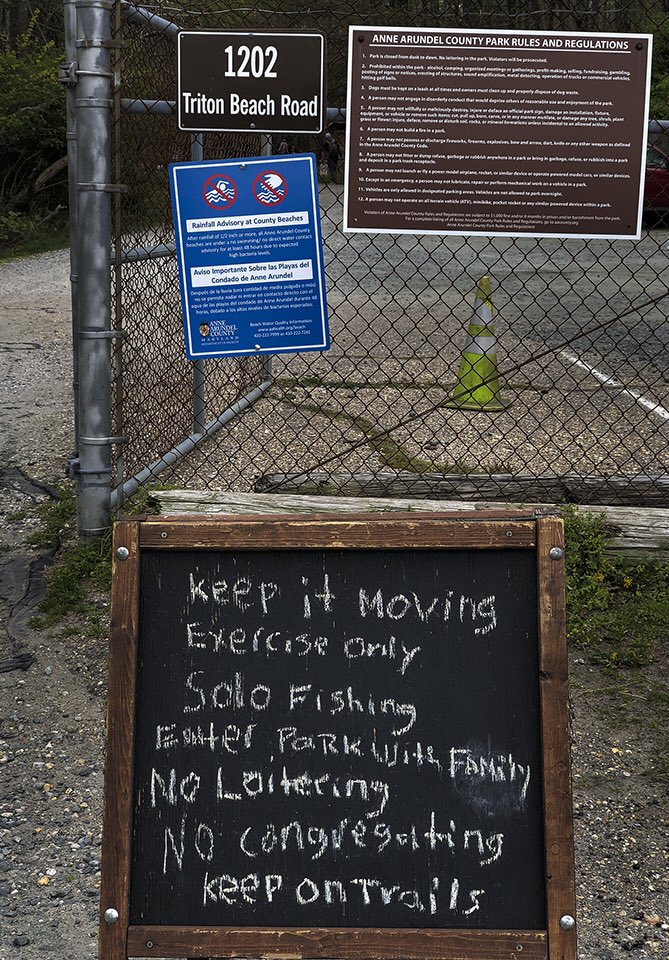 1202
Triton Beach Road
ANNE ARUNDEL COUNTY PARK RULES AND REGULATIONS
1. Park is closed from dusk to dawn. No loitering in the park. Violators will be prosecuted.
2. Prohibited within the park - alcohol, camping, organized meetings or gatherings, profit-making, selling, fundraising, gambling,
posting of signs or notices, erecting of structures, sound amplification, metal detecting, operation of trucks or commercial vehicles,
hitting golf balls.
3. Dogs must be kept on a leash at all times and owners must clean up and properly dispose of dog waste.
4. A person may not engage in disorderly conduct that would deprive others of reasonable use and enjoyment of the park.
5. A person may not willfully or maliciously destroy, injure or deface an official park sign, damage an installation, fixture,
equipment, or vehicle or remove such items; cut, pull up, burn, carve, or in any manner mutilate, or damage any tree, shrub, plant
grass or flower; injure, deface, remove or disturb soil, rocks, or mineral formations unless incidental to an allowed activity.
6. A person may not build a fire in a park.
7. A person may not possess or discharge fireworks, firearms, explosives, bow and arrow, dart, knife or any other weapon as defined
in the Anne Arundel County Code.
8. A person may not litter or dump refuse, garbage or rubbish anywhere in a park or bring in garbage, refuse, or rubbish into a park
and deposit in a park trash receptacle.
9. A person may not launch or fly a power model airplane, rocket, or similar device or operate powered model cars, or similar devices.
10. Except in an emergency, a person may not lubricate, repair or perform mechanical work on a vehicle in a park.
11. Vehicles are only allowed in designated parking areas. Vehicles are not allowed to park overnight.
12. A person may not operate an all terrain vehicle (ATV), minibike, pocket rocket or any similar powered device within a park.
Violators of Anne Arundel County Rules and Regulations are subject to $1,000 fine and/or 6 months in prison and/or banishment from the park.
For a complete listing of all Anne Arundel County Rules and Regulations, go to aacounty.org
Anne Arundel County Park Rules and Regulations
Rainfall Advisory at County Beaches
After rainfall of 1/2 inch or more, all Anne Arundel County
beaches are under a no swimming/ no direct water contact
advisory for at least 48 hours due to expected
high bacteria levels.
Aviso Importante Sobre las Playas del
Condado de Anne Arundel
Después de la lluvia (una cantidad de media pulgada o más)
no se permite nadar ni entrar en contacto directo con el
agua de las playas del condado de Anne Arundel durante 48
horas, debido a los altos niveles de bacterias esperados.
ANNE
ARUNDEL
COUNTY
MARYLAND
DEPARTMENT OF HEALTH
Beach Water Quality Information:
www.aahealth.org/beach
410-222-7999 or 410-222-7241
Keep it Moving
Exercise Only
Solo Fishing
Enter Park With Family
No Loitering
No congregating
Keep on Trails